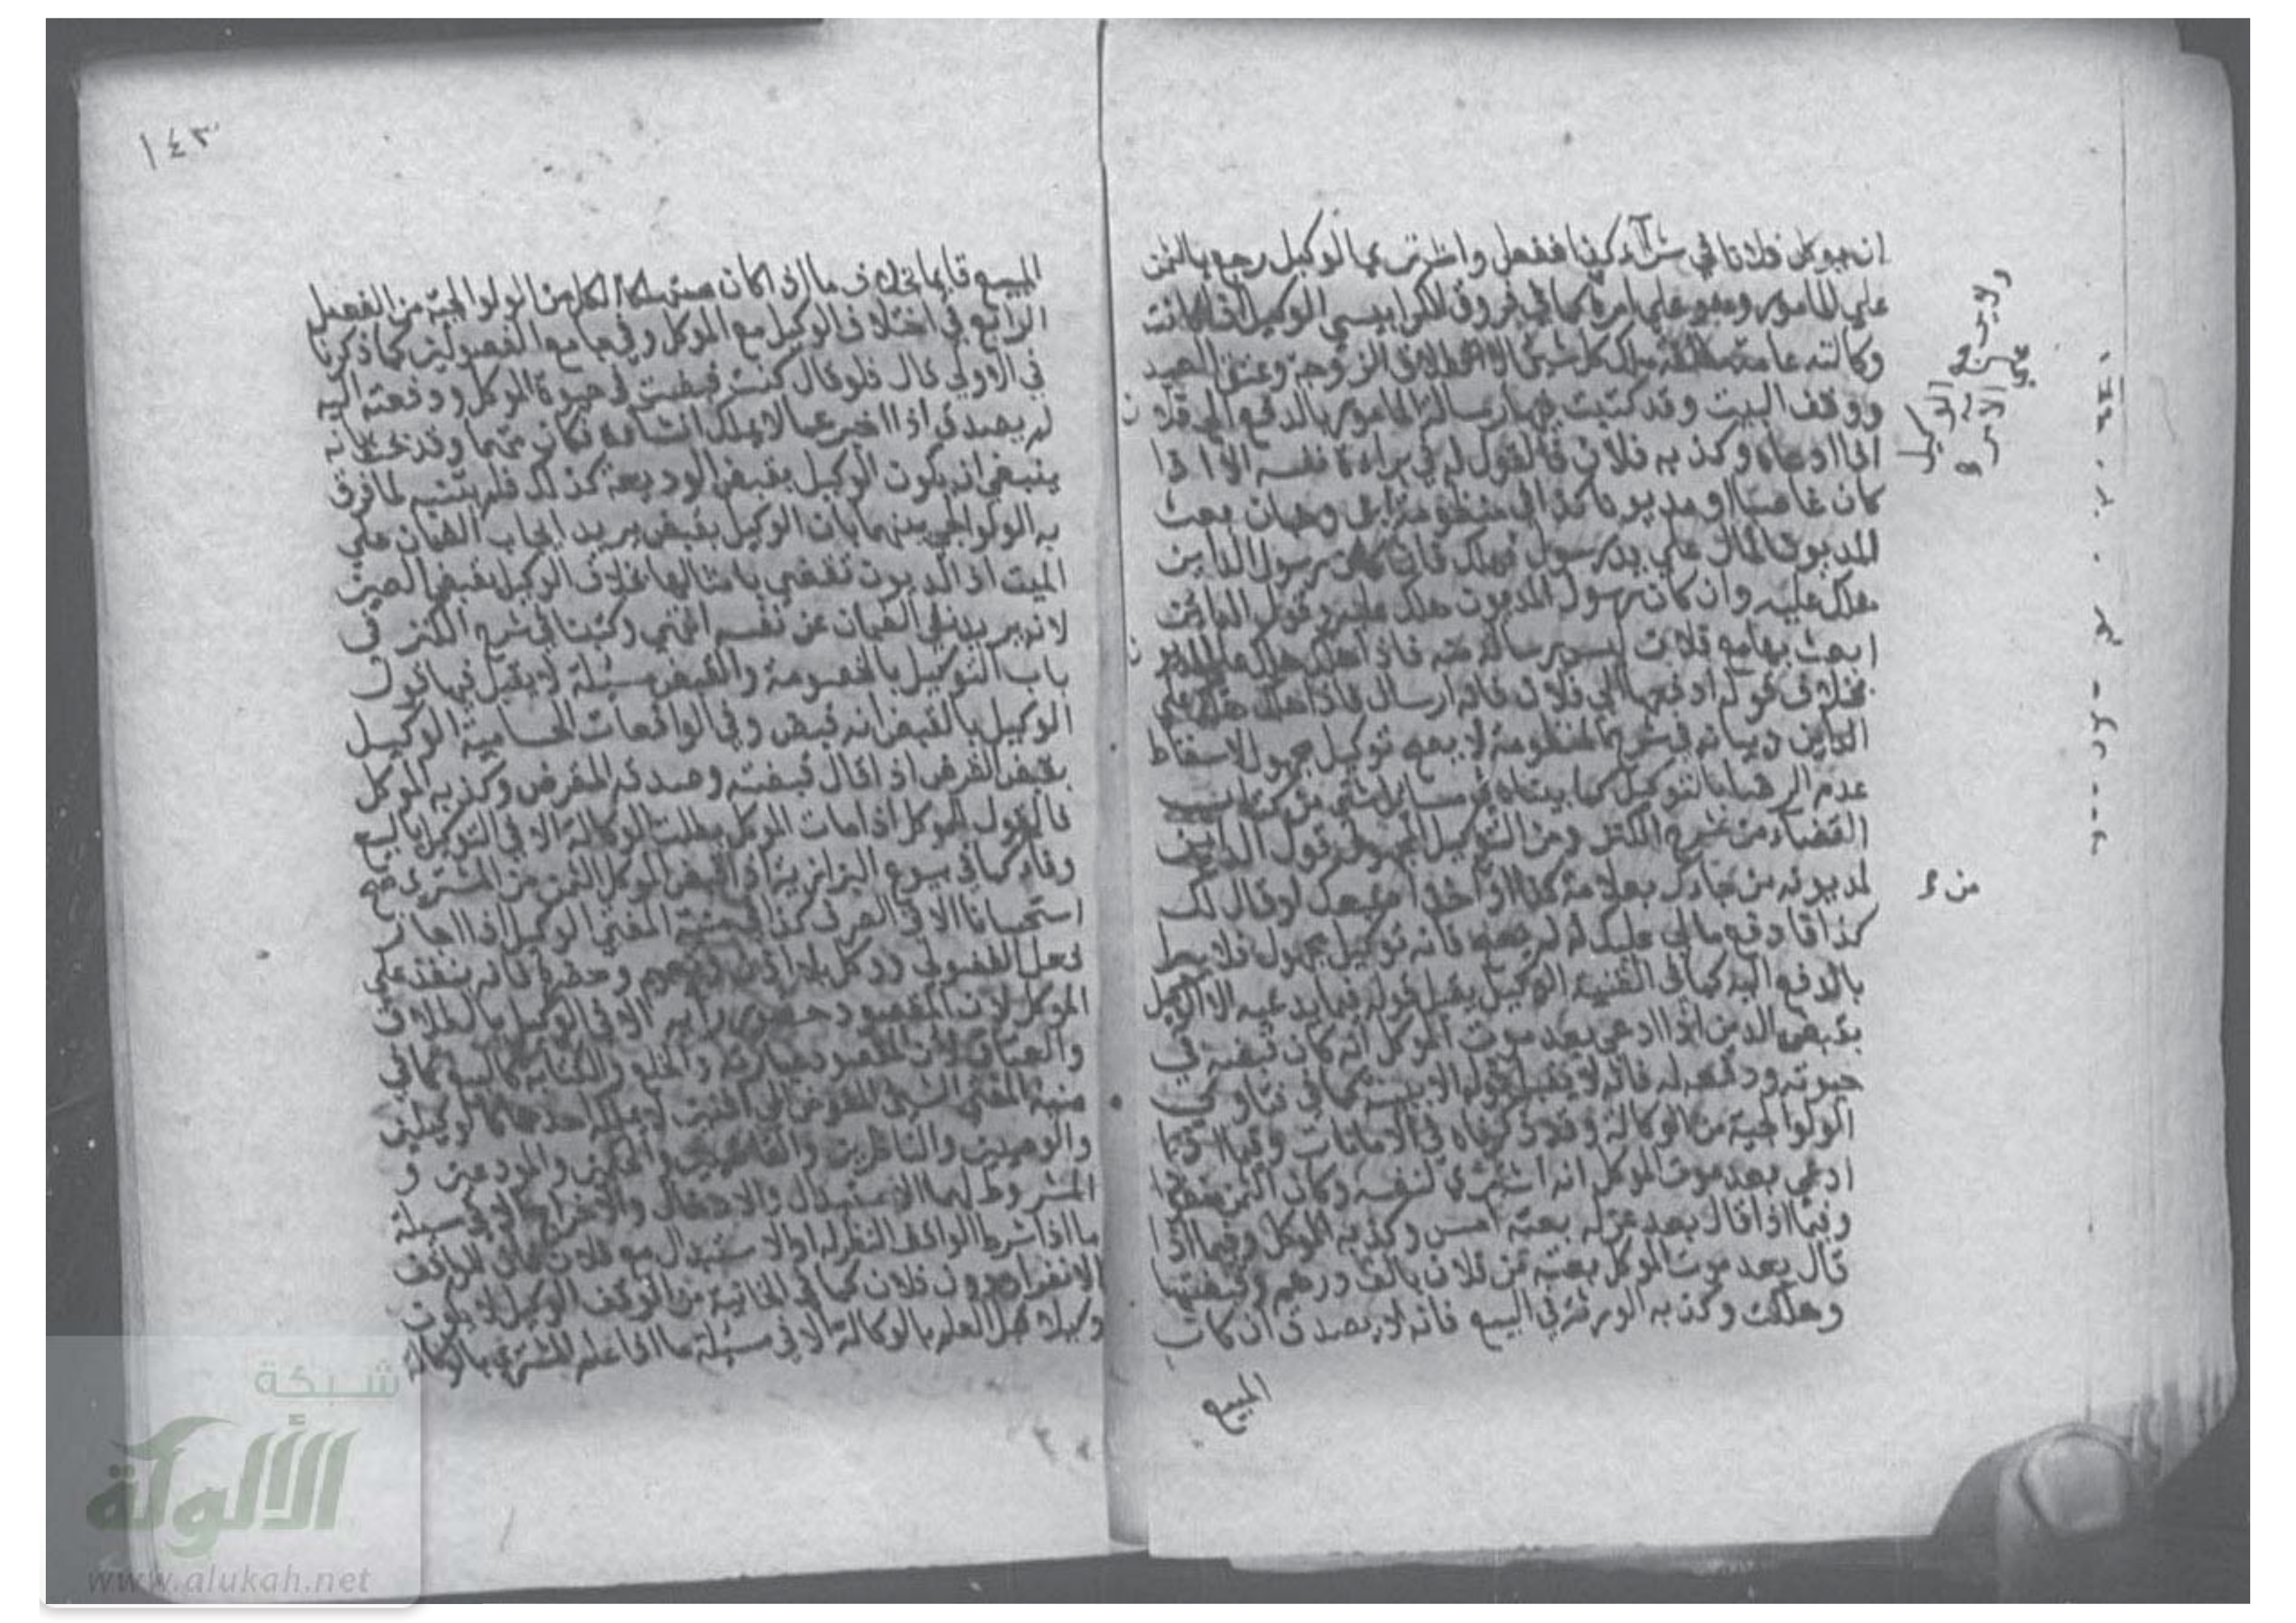 ان يوكل فلانا في شراء كذا ففعل واشترى الوكيل رجع بالثمن
على المأمور وهو على آمره كما في فروق الكرابيسي الوكيل اذا كانت
وكالته عامة مطلقة ملك كل شيئ الا طلاق الزوجة وعتق العبيد
ووقف البيت وقد كتبت فيها رسالة المأمور بالدفع الى فلان
اذا ادعاه وكذبه فلان فالقول له في براءة نفسه الا اذا
كان غاصبا او مديونا كذا في منظومة ابن وهبان بعث
المديون المال على يد رسول فهلك فان كان رسول الداين
هلك عليه وان كان رسول المديون هلك عليه وقول الداين
ابعث بها مع فلان ليس رسالة منه فاذا هلك هلك على المديون
بخلاف قوله ادفعها الى فلان فانه ارسال فاذا هلك هلك على
الداين وبيانه في شرح المنظومة لا يصح توكيل مجهول الا لاسقاط
عدم الرضا بالتوكيل كما بيناه في مسائل شتى من كتاب
القضاء من شرح الكنز ومن التوكيل المجهول قول الداين
لمديونه من جاءك بعلامة كذا او اخذ اصبعك او قال لك
كذا فادفع مالي عليك له لم يصح فانه توكيل مجهول فلا يبرأ
بالدفع اليه كما في القنية الوكيل يقبل قوله فيما يدعيه الا الوكيل
بقبض الدين اذا ادعى بعد موت الموكل انه كان قبضه في
حيوته ودفعه له فانه لا يقبل قوله الا ببينة كما في فتاوى
الولوالجية من الوكالة وقد ذكرناه في الامانات وفيما اذا
ادعى بعد موت الموكل انه اشترى لنفسه وكان الثمن منقودا
وفيما اذا قال بعد عزله بعته امس وكذبه الموكل وفيما اذا
قال بعد موت الموكل بعته من فلان بالف درهم وقبضتها
وهلكت وكذبه الورثة في البيع فانه لا يصدق ان كان
المبيع
من
١٤٣
المبيع قايما بخلاف ما اذا كان مستهلكا الكل من الولوالجية من الفصل
الرابع في اختلاف الوكيل مع الموكل وفي جامع الفصولين كما ذكرنا
في الاولى قال فلو قال كنت قبضت في حيوة الموكل ودفعته اليه
لم يصدق اذا اخبر عما لا يملك انشاءه فكان متهما وقد بحث بانه
ينبغي ان يكون الوكيل بقبض الوديعة كذلك فلم يتنبه لما فرق
به الولوالجي بينهما بان الوكيل بقبض يريد ايجاب الضمان على
الميت اذ الديون تقضى بامثالها بخلاف الوكيل بقبض العين
لانه يريد نفي الضمان عن نفسه انتهى وكتبنا في شرح الكنز في
باب التوكيل بالخصومة والقبض مسئلة لا يقبل فيها قول
الوكيل بالقبض انه قبض وفي الواقعات الحسامية الوكيل
بقبض القرض اذ قال قبضته وصدقه المقرض وكذبه الموكل
فالقول للموكل اذا مات الموكل بطلت الوكالة الا في التوكيل بالبيع
وفاء كما في بيوع البزازية اذا قبض الموكل الثمن من المشتري صح
استحسانا الا في الصرف كذا في منية المفتي الوكيل اذا اجاز
فعل الفضولي او وكل بلا اذن وتعميم وحضره فانه ينفذ على
الموكل لان المقصود حضور رأيه الا في الوكيل بالطلاق
والعتاق لان المقصود عبارته والخلع والكتابة كالبيع كما في
منية المفتي الشيئ المفوض الى اثنين لا يملكه احدهما كالوكيلين
والوصيين والناظرين والقاضيين والحكمين والمودعين و
المشروط لهما الاستبدال والادخال والاخراج الا في مسئلة
ما اذا شرط الواقف النظر له او الاستبدال مع فلان فان للواقف
الانفراد دون فلان كما في الخانية من الوقف الوكيل لا يكون
وكيلا قبل العلم بالوكالة الا في مسئلة ما اذا علم المشتري بالوكالة
شبكة
الألوكة
www.alukah.net